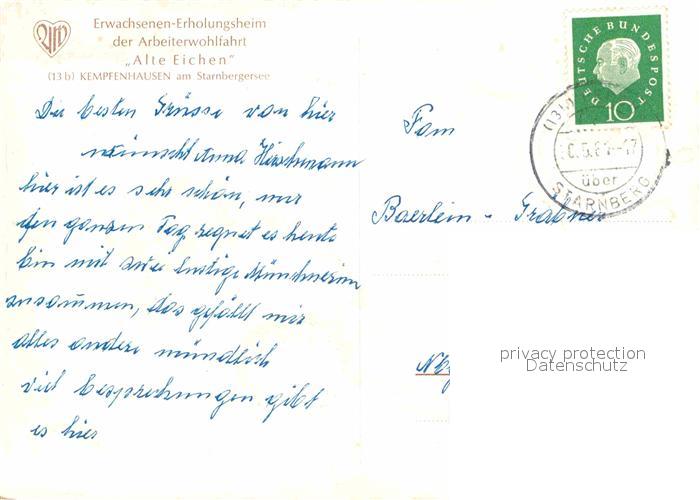 Erwachsenen-Erholungsheim
der Arbeiterwohlfahrt
„Alte Eichen"
(13 b) KEMPFENHAUSEN am Starnbergersee
Die besten Grüsse von hier
wünscht Anna Hirschmann
hier ist es sehr schön, nur
den ganzen Tag regnet es heute
bin mit zwei lustige Münchnerin
zusammen, das gefällt mir
alles andere mündlich
viel Besprechungen gibt
es hier
DEUTSCHE BUNDESPOST
10
(13b)
über
STARNBERG
Fam
Baerlein - Grabner
Nbg
privacy protection
Datenschutz